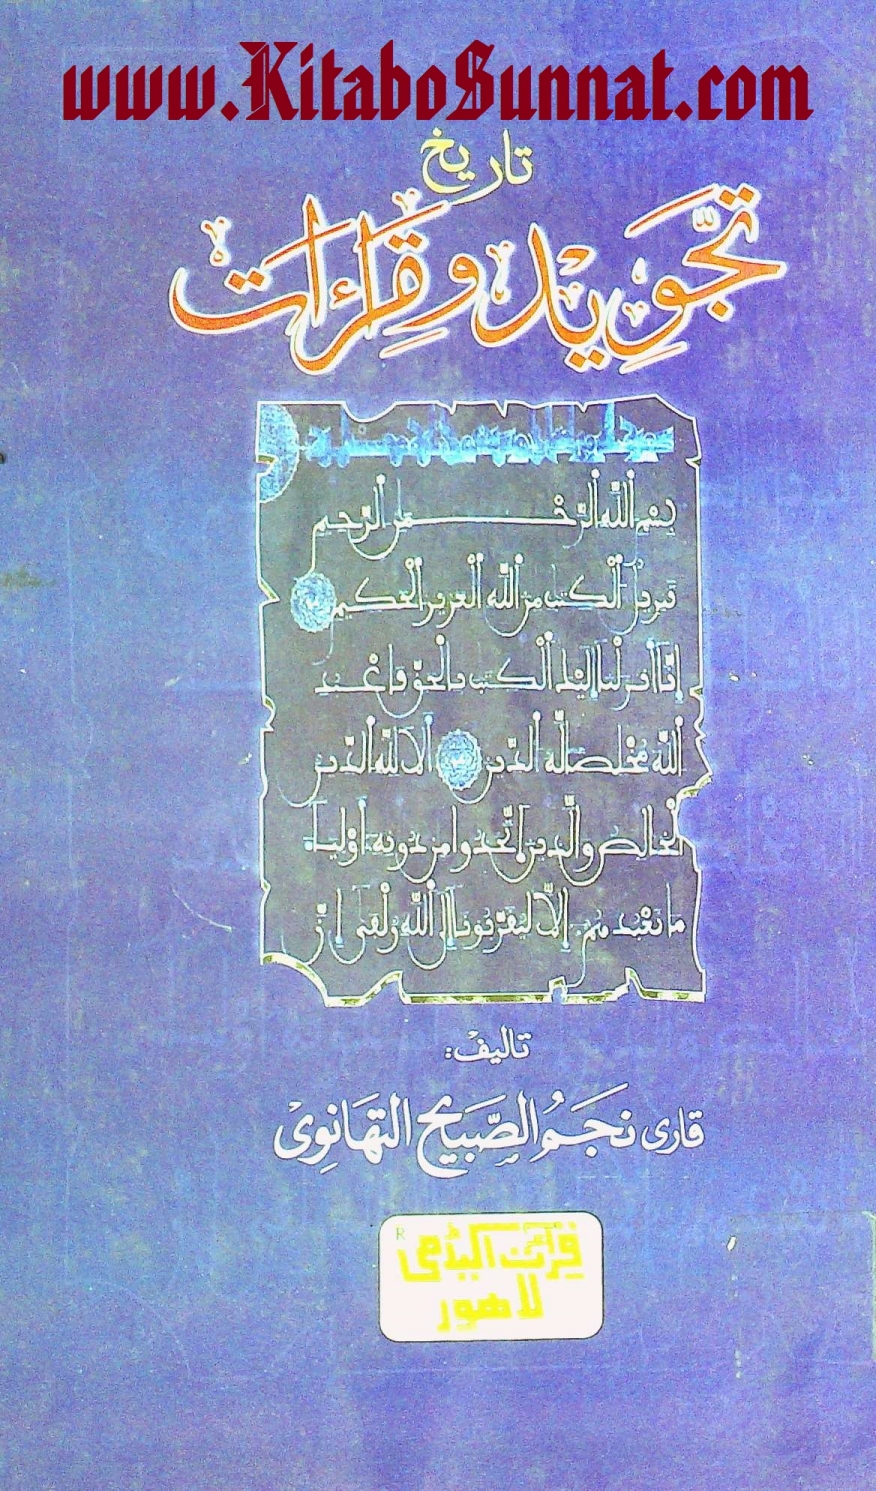 www.KitaboSunnat.com
تاریخ
تجّوِید و قِراءات
بسم الله الرحمن الرحيم
تنزيل الكتب من الله العزيز الحكيم
انا انزلنا اليك الكتب بالحق فاعبد
الله مخلصا له الدين الا لله الدين
الخالص والذين اتخذوا من دونه اولياء
ما نعبدهم الا ليقربونا الى الله زلفى ان
تالیف:
قاری نجم الصّبیح التھانوی
قرأت اکیڈمی R
لاھور